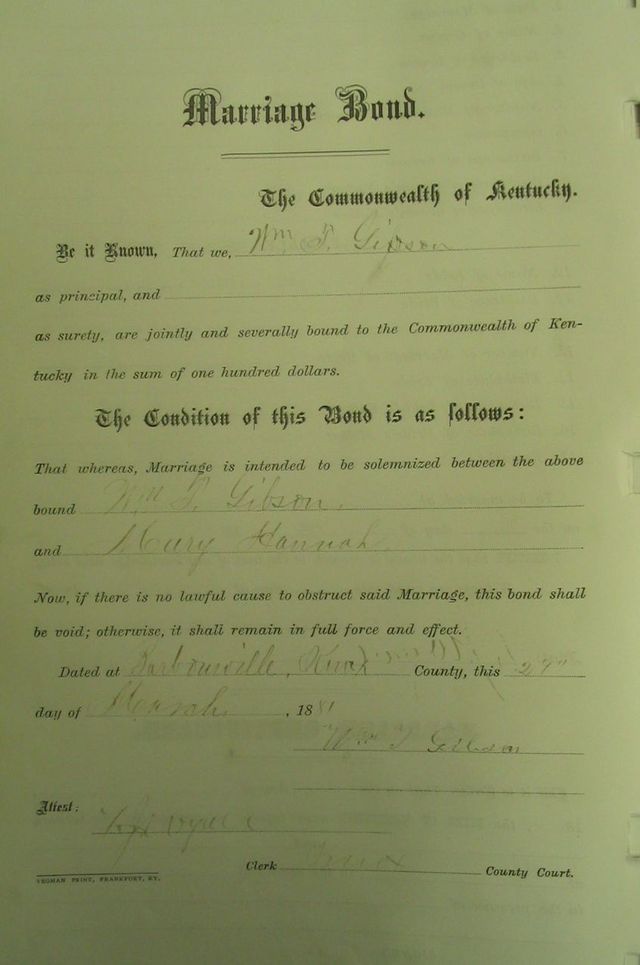 Marriage Bond.
The Commonwealth of Kentucky.
Be it Known, That we, Wm T. Gibson
as principal, and
as surety, are jointly and severally bound to the Commonwealth of Ken-
tucky in the sum of one hundred dollars.
The Condition of this Bond is as follows:
That whereas, Marriage is intended to be solemnized between the above
bound Wm T. Gibson.
and Mary Hannah
Now, if there is no lawful cause to obstruct said Marriage, this bond shall
be void; otherwise, it shall remain in full force and effect.
Dated at Barbourville, Knox County, this 29"
day of March, 1881
Wm T Gibson
Attest:
Clerk Knox County Court.
YEOMAN PRINT, FRANKFORT, KY.